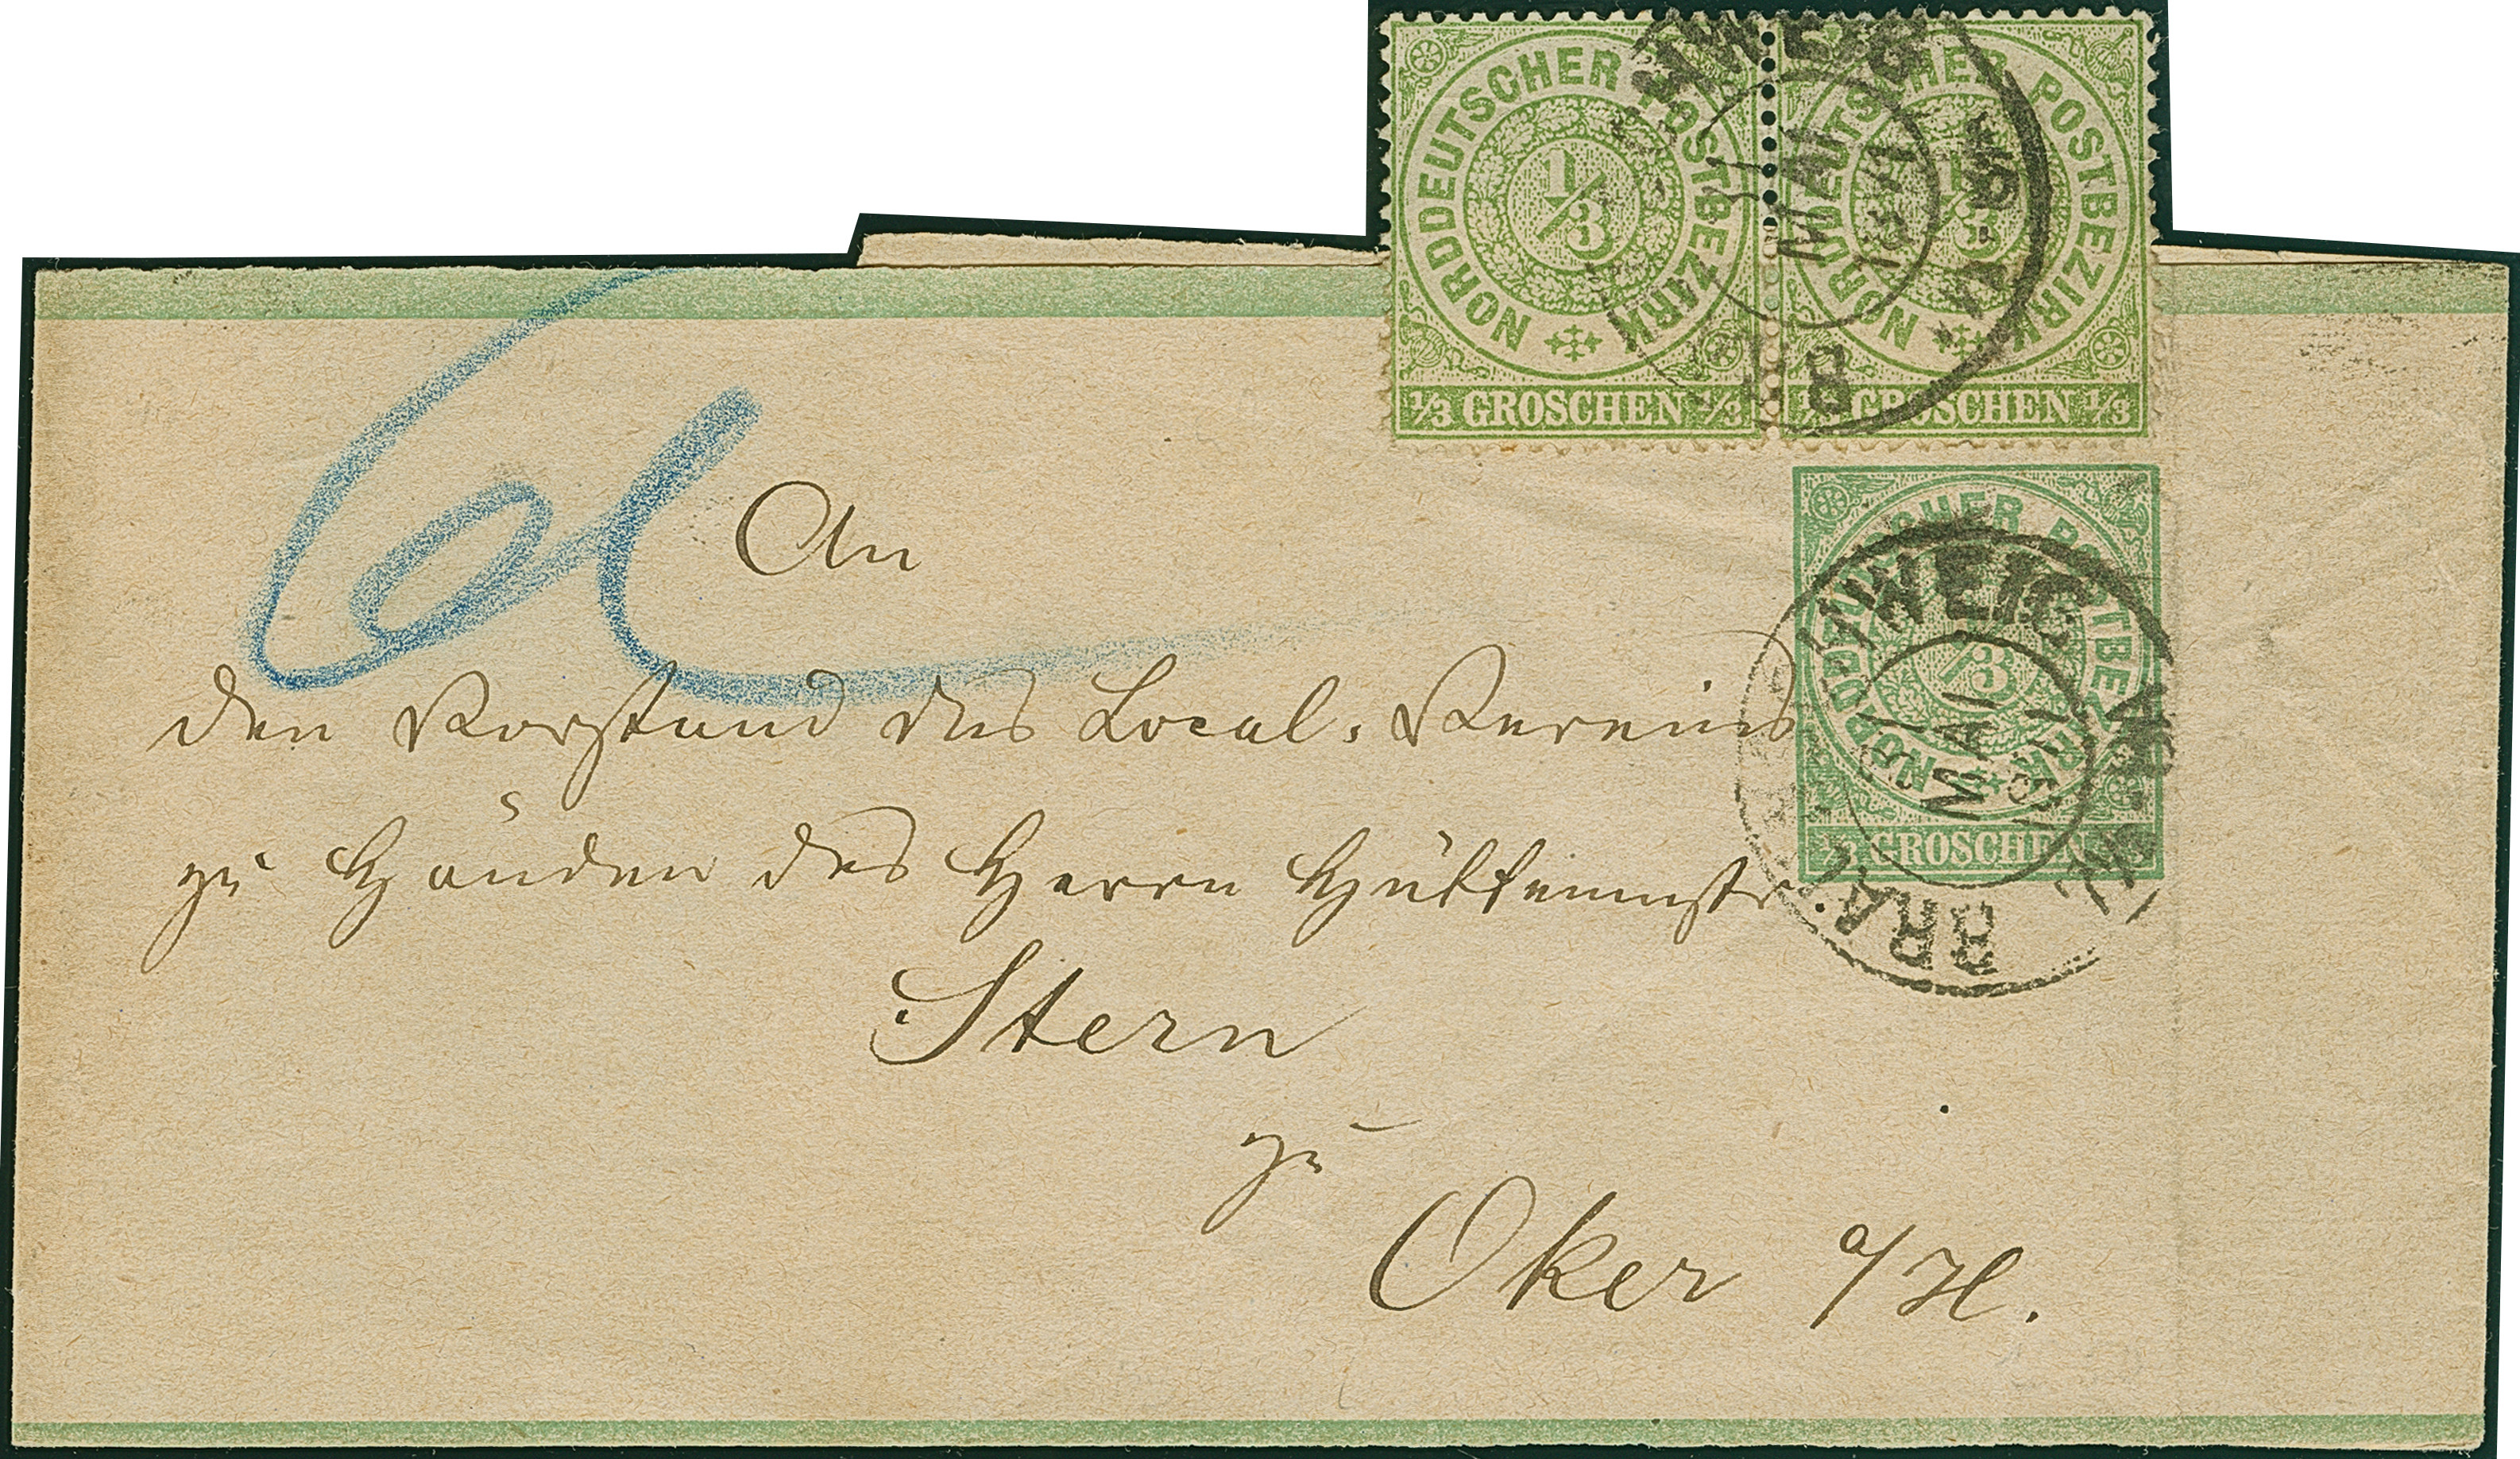 NORDDEUTSCHER POSTBEZIRK
1/3
1/3 GROSCHEN 1/3
NORDDEUTSCHER POSTBEZIRK
1/3
1/3 GROSCHEN 1/3
HWEIG
MAI
NORDDEUTSCHER POSTBEZIRK
1/3
1/3 GROSCHEN
BRAU
HWEIG
MAI
1871
An
den Vorstand des Local-Vereins
zu Händen des Herrn Hüttenmstr.
Stern
zu
Oker a/H.